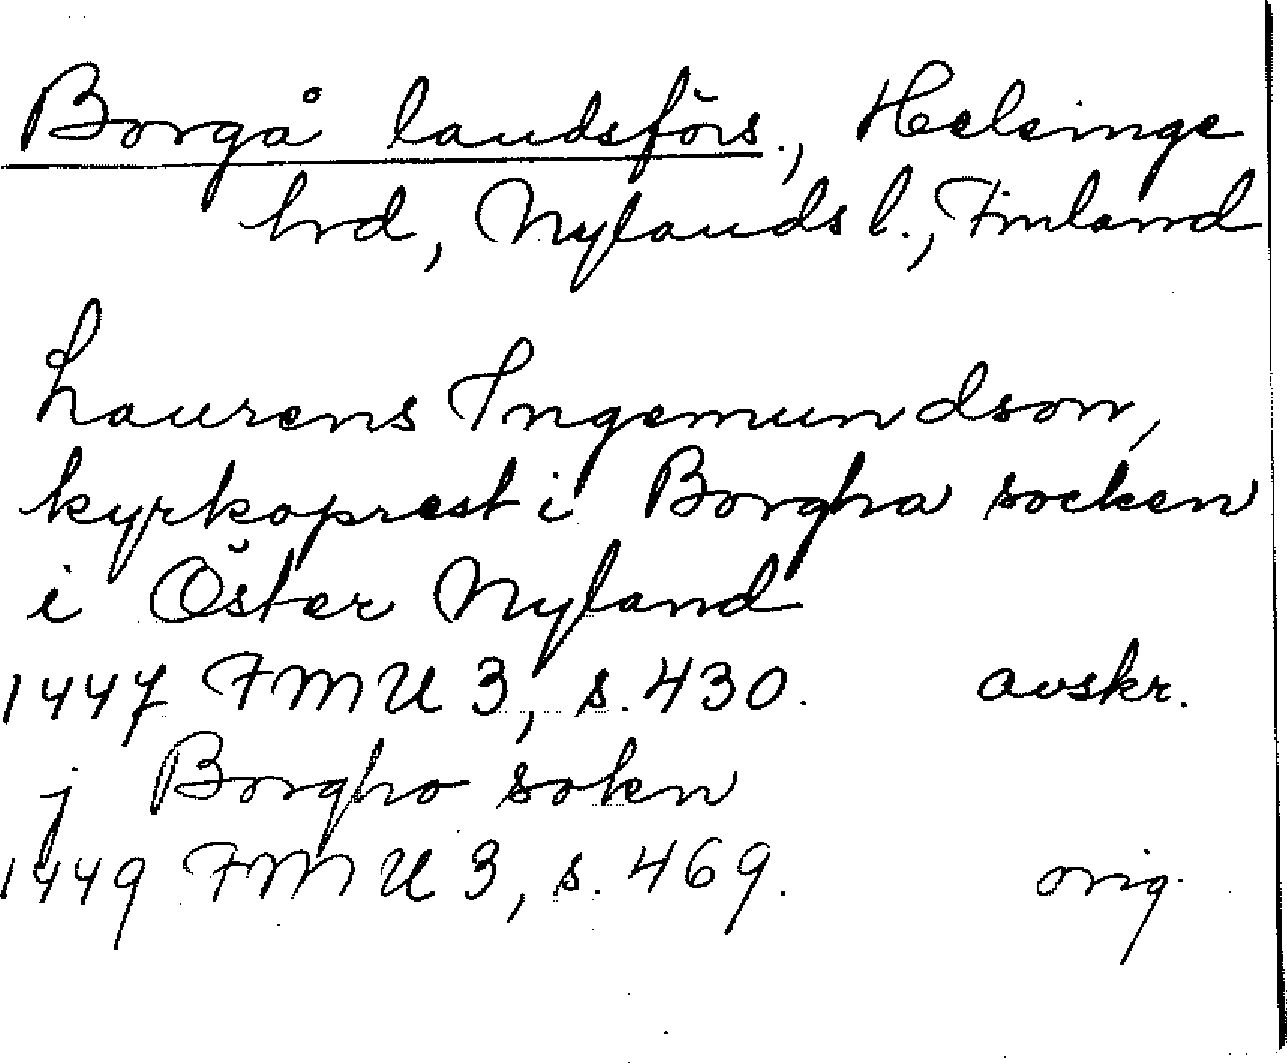 Borgå landsförs., Helsinge
hrd, Nylands l., Finland
Laurens Ingemundson,
kyrkoprest i Borgha socken
i Öster Nyland
1447 FMU 3, s. 430. avskr.
j Borgho sokn
1449 FMU 3, s. 469. orig.